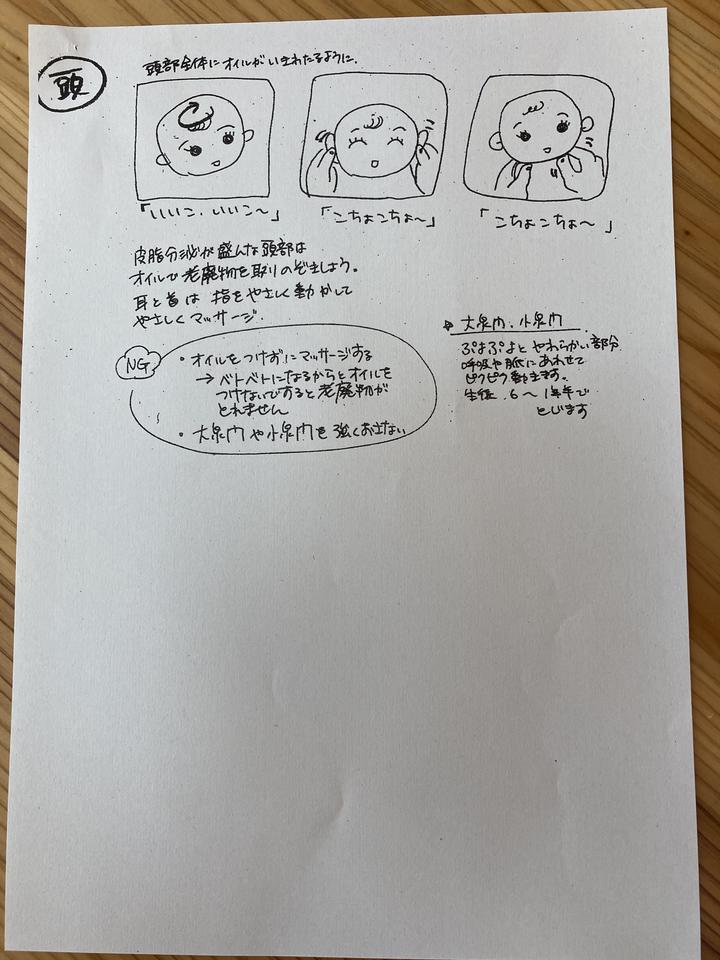 頭
頭部全体にオイルがいきわたるように.
「いいこ.いいこ〜」
「こちょこちょ〜」
「こちょこちょ〜 」
皮脂分泌が盛んな頭部は
オイルで老廃物を取りのぞきましょう。
耳と首は 指をやさしく動かして
やさしくマッサージ.
NG
・オイルをつけずにマッサージする
→ベトベトになるからとオイルを
つけないですると老廃物が
とれません
・大泉門や小泉門を強くおさない
大泉門.小泉門
ぷよぷよとやわらかい部分.
呼吸や脈にあわせて
ピクピク動きます。
生後.6〜1年半で
とじます